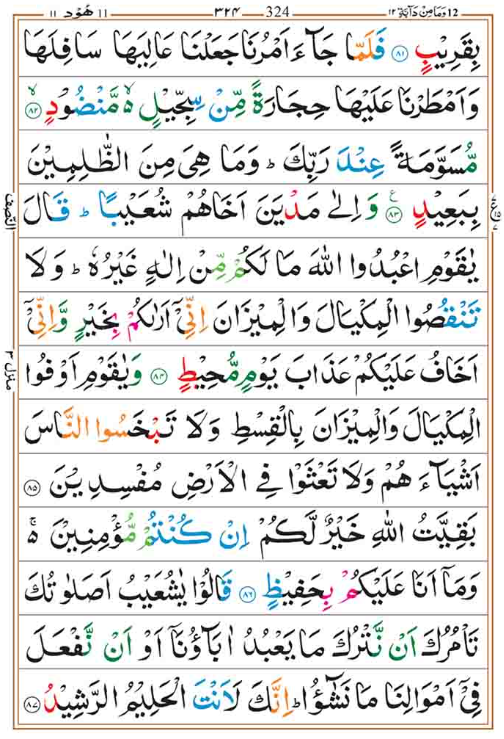 ١١ هُوْد ١١ ٣٢٤ 324 12 وَمَا مِنْ دَآبَّةٍ ١٢
بِقَرِيْبٍ ﴿۸۱﴾ فَلَمَّا جَآءَ اَمْرُنَا جَعَلْنَا عَالِيَهَا سَافِلَهَا
وَاَمْطَرْنَا عَلَيْهَا حِجَارَةً مِّنْ سِجِّيْلٍ ۙ مَّنْضُوْدٍ ۙ ﴿۸۲﴾
مُّسَوَّمَةً عِنْدَ رَبِّكَ ؕ وَمَا هِىَ مِنَ الظّٰلِمِيْنَ
بِبَعِيْدٍ ﴿۸۳﴾ ع وَاِلٰى مَدْيَنَ اَخَاهُمْ شُعَيْبًا ؕ قَالَ
النصف
يٰقَوْمِ اعْبُدُوا اللّٰهَ مَا لَكُمْ مِّنْ اِلٰهٍ غَيْرُهٗ ؕ وَلَا
تَنْقُصُوا الْمِكْيَالَ وَالْمِيْزَانَ اِنِّىْۤ اَرٰىكُمْ بِخَيْرٍ وَّاِنِّىْۤ
اَخَافُ عَلَيْكُمْ عَذَابَ يَوْمٍ مُّحِيْطٍ ﴿۸۴﴾ وَيٰقَوْمِ اَوْفُوا
منزل ٣
الْمِكْيَالَ وَالْمِيْزَانَ بِالْقِسْطِ وَلَا تَبْخَسُوا النَّاسَ
اَشْيَآءَ هُمْ وَلَا تَعْثَوْا فِى الْاَرْضِ مُفْسِدِيْنَ ﴿۸۵﴾
بَقِيَّتُ اللّٰهِ خَيْرٌ لَّكُمْ اِنْ كُنْتُمْ مُّؤْمِنِيْنَ ۚ
وَمَاۤ اَنَا عَلَيْكُمْ بِحَفِيْظٍ ﴿۸۶﴾ قَالُوْا يٰشُعَيْبُ اَصَلٰوتُكَ
تَاْمُرُكَ اَنْ نَّتْرُكَ مَا يَعْبُدُ اٰبَآؤُنَاۤ اَوْ اَنْ نَّفْعَلَ
فِىْۤ اَمْوَالِنَا مَا نَشٰٓؤُا ؕ اِنَّكَ لَاَنْتَ الْحَلِيْمُ الرَّشِيْدُ ﴿۸۷﴾